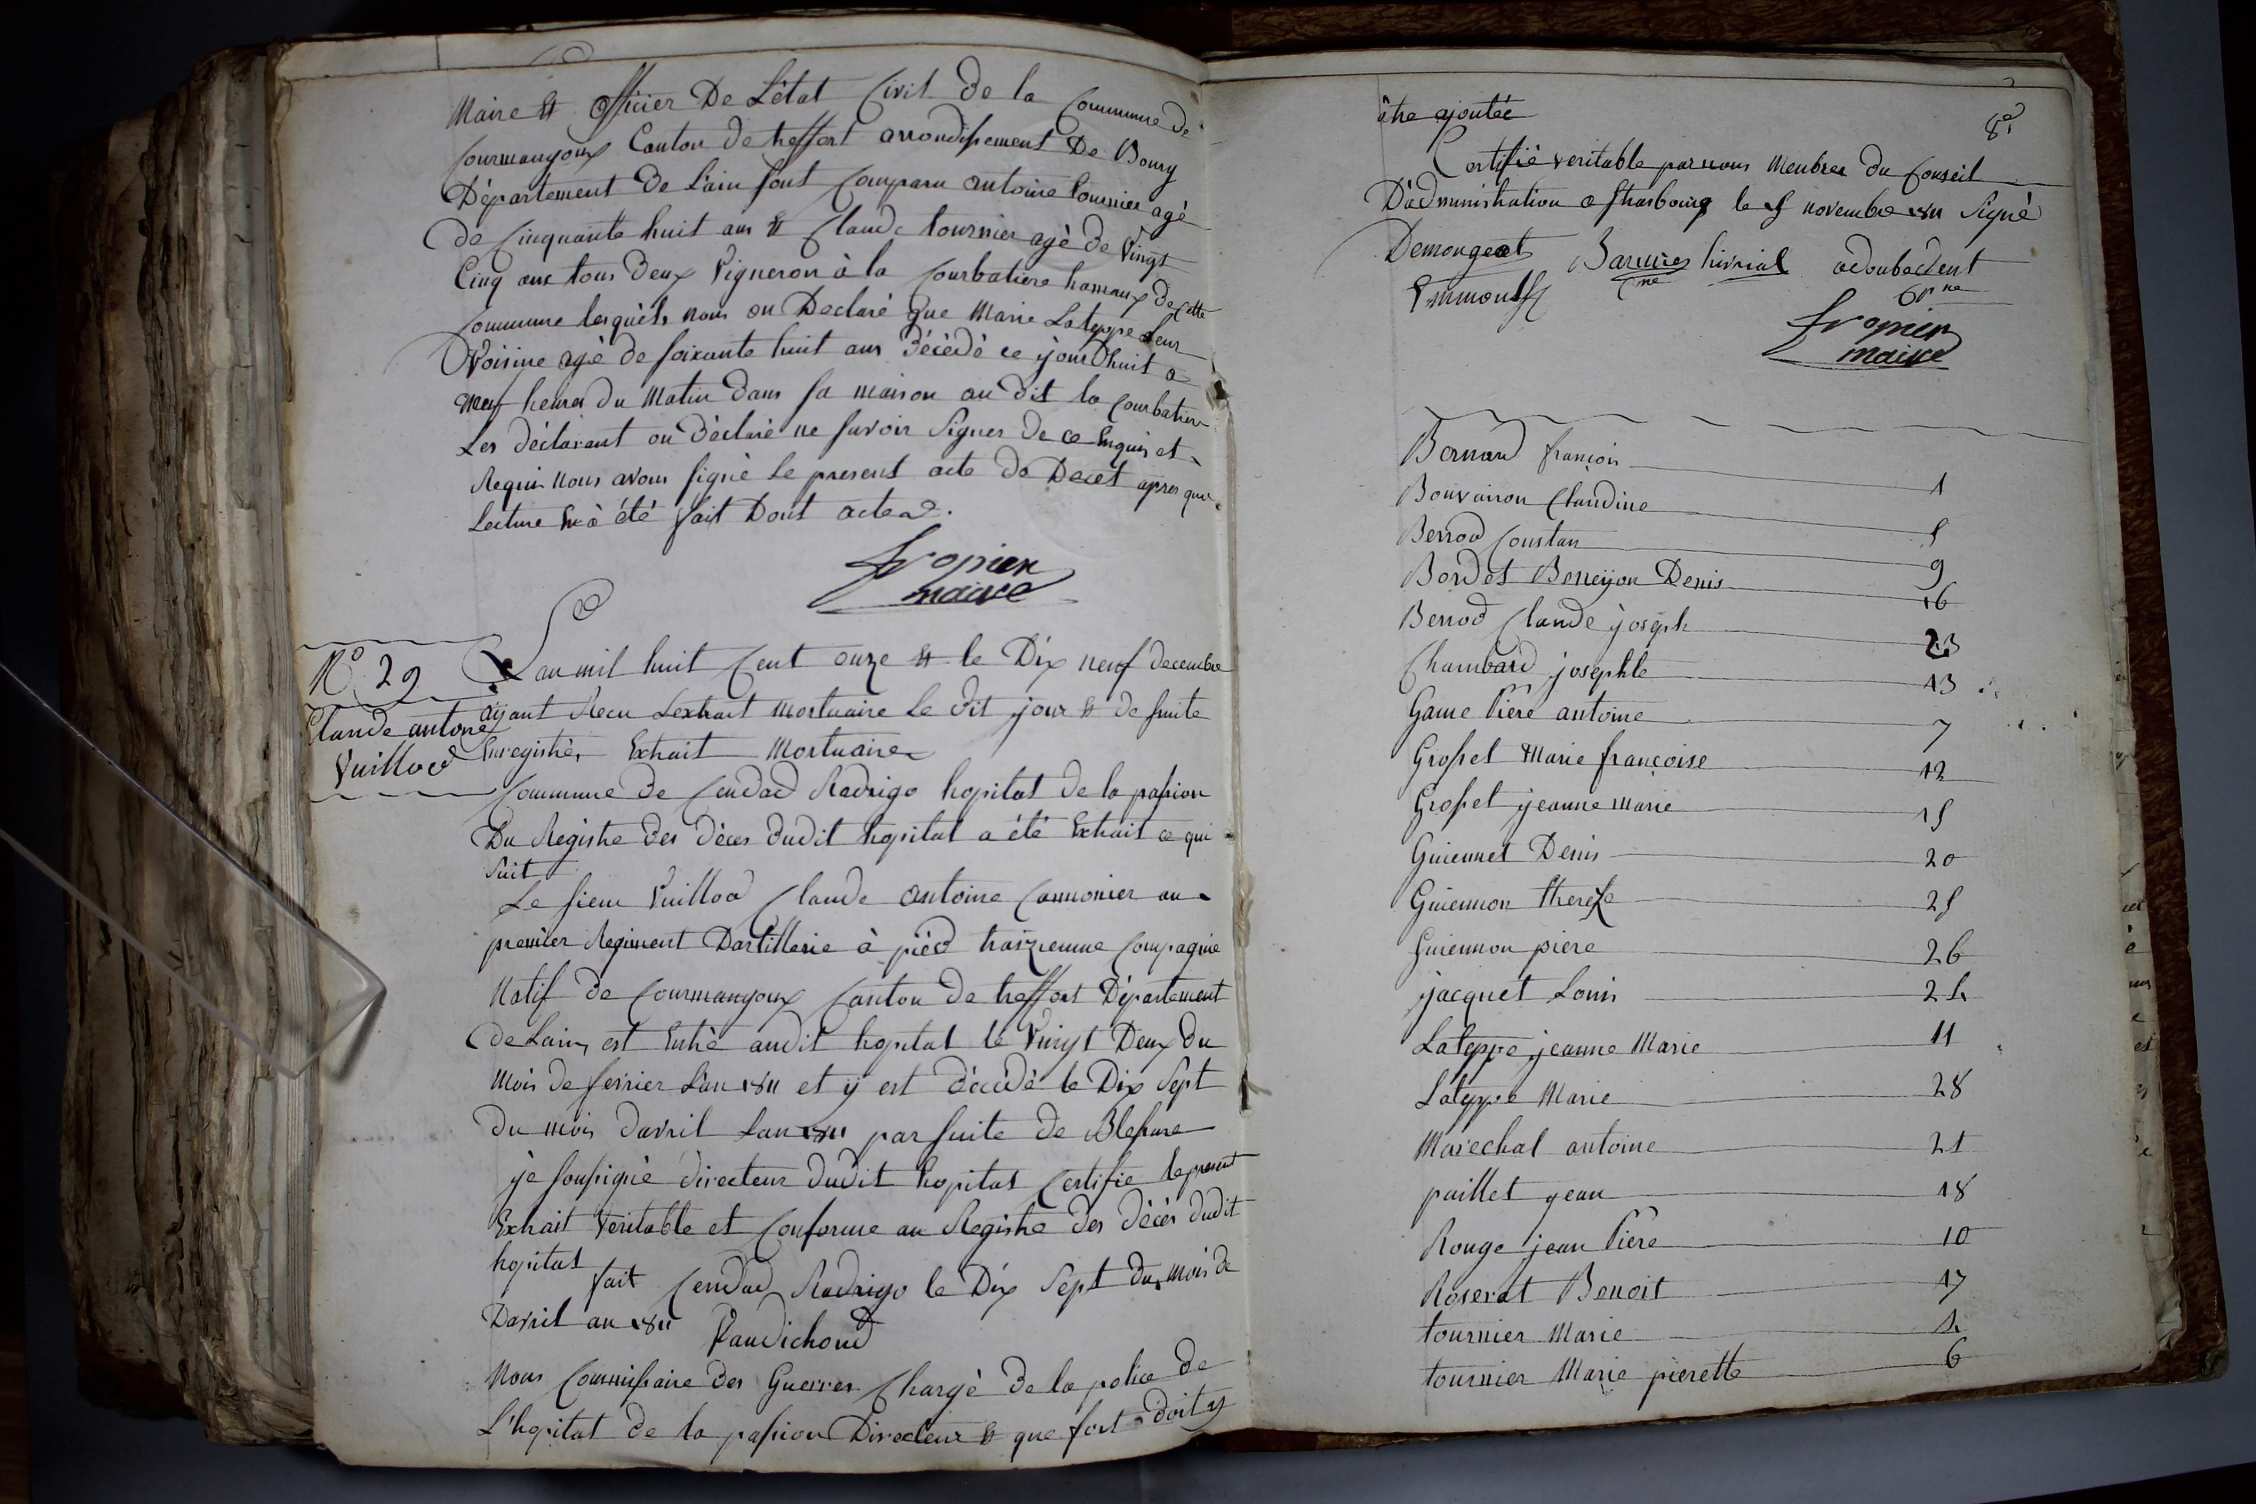 Maire et officier De L'état Civil de la Commune de
Courmangoux Canton de treffort arrondissement De Bourg
Département de L'ain sont Comparu antoine tournier agé
de Cinquante huit ans et Claude tournier agé de Vingt
Cinq ans tous deux Vigneron à la Courbatiere hamaux de cette
Commune lesquèls nous on Declaré que Marie Lateppe leur
Voisine agé de soixante huit ans décédé ce jourdhuit a
neuf heures du Matin dans sa maison au dit la Courbatiere
Les déclarant on déclaré ne savoir Signer de ce Enquis et
Requis nous avons signé le present acte de Decet apres que
Lecture En à été fait Dont acte.
fropier
maire
N° 29
Claude antone
Vuillod
Lan mil huit Cent onze et le Dix neuf decembre
ayant Recu Lextrait mortuaire le dit jour et de suite
Enregistré, Extrait Mortuaire
Commune de Ceudad Radrigo hopital de la passion
Du Registre des déces dudit hopital a été Extrait ce qui
suit
Le sieur Vuillod Claude antoine Cannonier au
premier Regiment Dartillerie à piéd traizieme Compagnie
Natif de Courmangoux Canton de treffort Département
de Lain, est Entré audit hopital le Vingt Deux du
mois de fevrier Lan 1811 et y est décédé le Dix Sept
du mois davril Lan 1811 par suite de Blessure
je soussigné directeur dudit hopital Certifie le present
Extrait Veritable et Conforme au Registre des décès dudit
hopital
fait Ceudad Radrigo le Dix Sept du mois de
Davril an 1811
Paudichond
Nous Commissaire des Guerres Chargé de la police de
L'hopital de la passion Directeur et que foi doit y
être ajoutée
8e
Certifié veritable par nous Membres du Conseil
D'administration a strasbourg le 5 novembre 1811 Signé
Demongeot
fropier
maire
Bernard françois 1
Bouvairon Claudine 5
Berrod Constan 9
Bordet Beneijon Denis 16
Berrod Claude joséph 23
Chambard josephte 13
Game Piere antoine 7
Grosset Marie françoise 12
Grosset jeanne marie 15
Guiennet Denis 20
Guiennon thereze 25
Guiennon piere 26
jacquet Louis 24
Lateppe jeanne Marie 11
Lateppe Marie 28
Marechal antoine 21
paillet jean 18
Rouge jean Piere 10
Roserat Benoit 17
tournier Marie 4
tournier Marie pierette 6